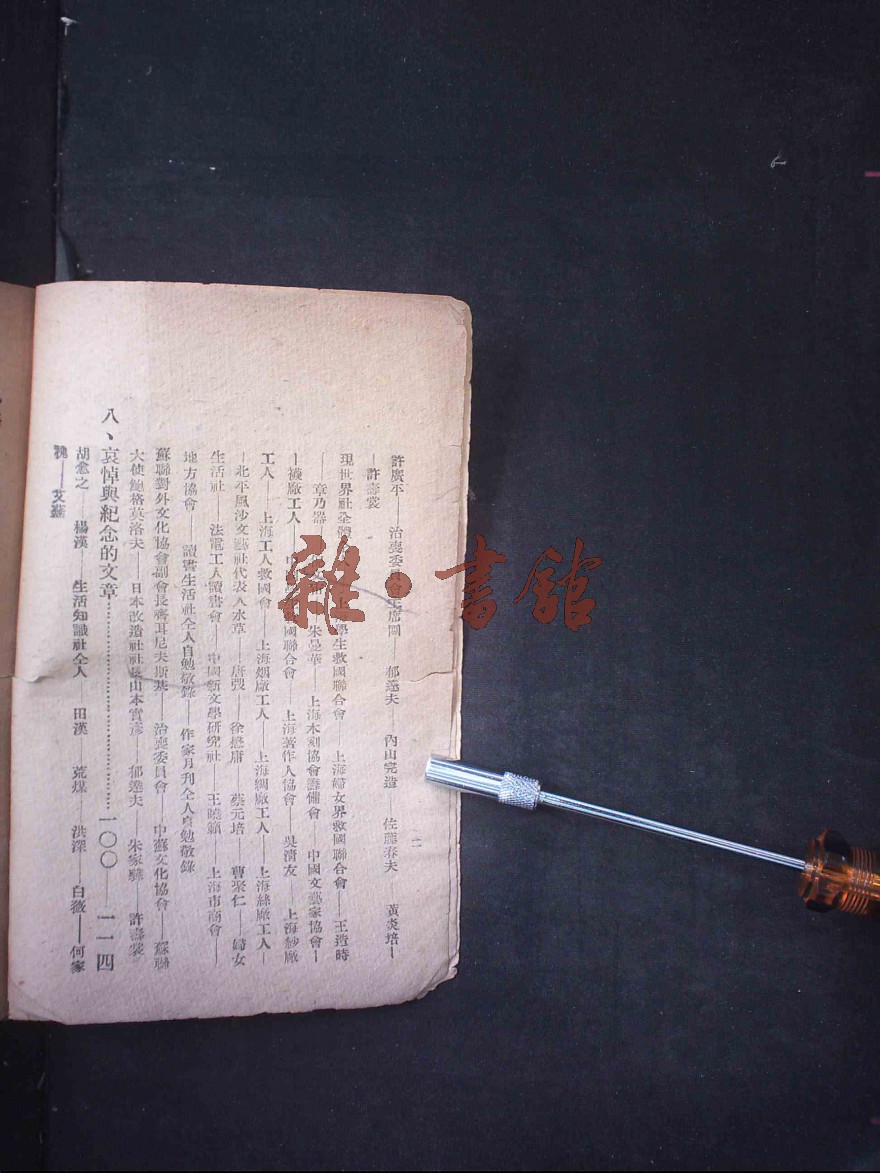 許廣平——治喪委員會主席團——郁達夫——內山完造——佐藤春夫——黃炎培—
—許壽裳
現世界社全體 上海學生救國聯合會——上海婦女界救國聯合會——王造時
——章乃器 朱曼華——上海木刻協會籌備會——中國文藝家協會—
—襪廠工人—— 國聯合會——上海著作人協會——吳清友——上海紗廠
工人——上海工人救國會——上海烟廠工人——上海綢廠工人——上海絲廠工人—
—北平風沙文藝社代表人水草——唐弢——徐懋庸——蔡元培——曹聚仁——婦女
生活社——法電工人讀書會——中國新文學研究社——王曉籟——上海市商會——
地方協會——讀書生活社仝人自勉敬錄——作家月刊仝人自勉敬錄
蘇聯對外文化協會副會長齊耳尼夫斯基——治喪委員會——中蘇文化協會——蘇聯
大使鮑格莫洛夫——日本改造社社長山本實彥——郁達夫——朱家驊——許壽裳
八、哀悼與紀念的文章……………………一〇〇——一一四
胡愈之——楊漢——生活知識社仝人——田漢——荒煤——洪深——白薇——何家
槐——艾蕪
二
雜·書館